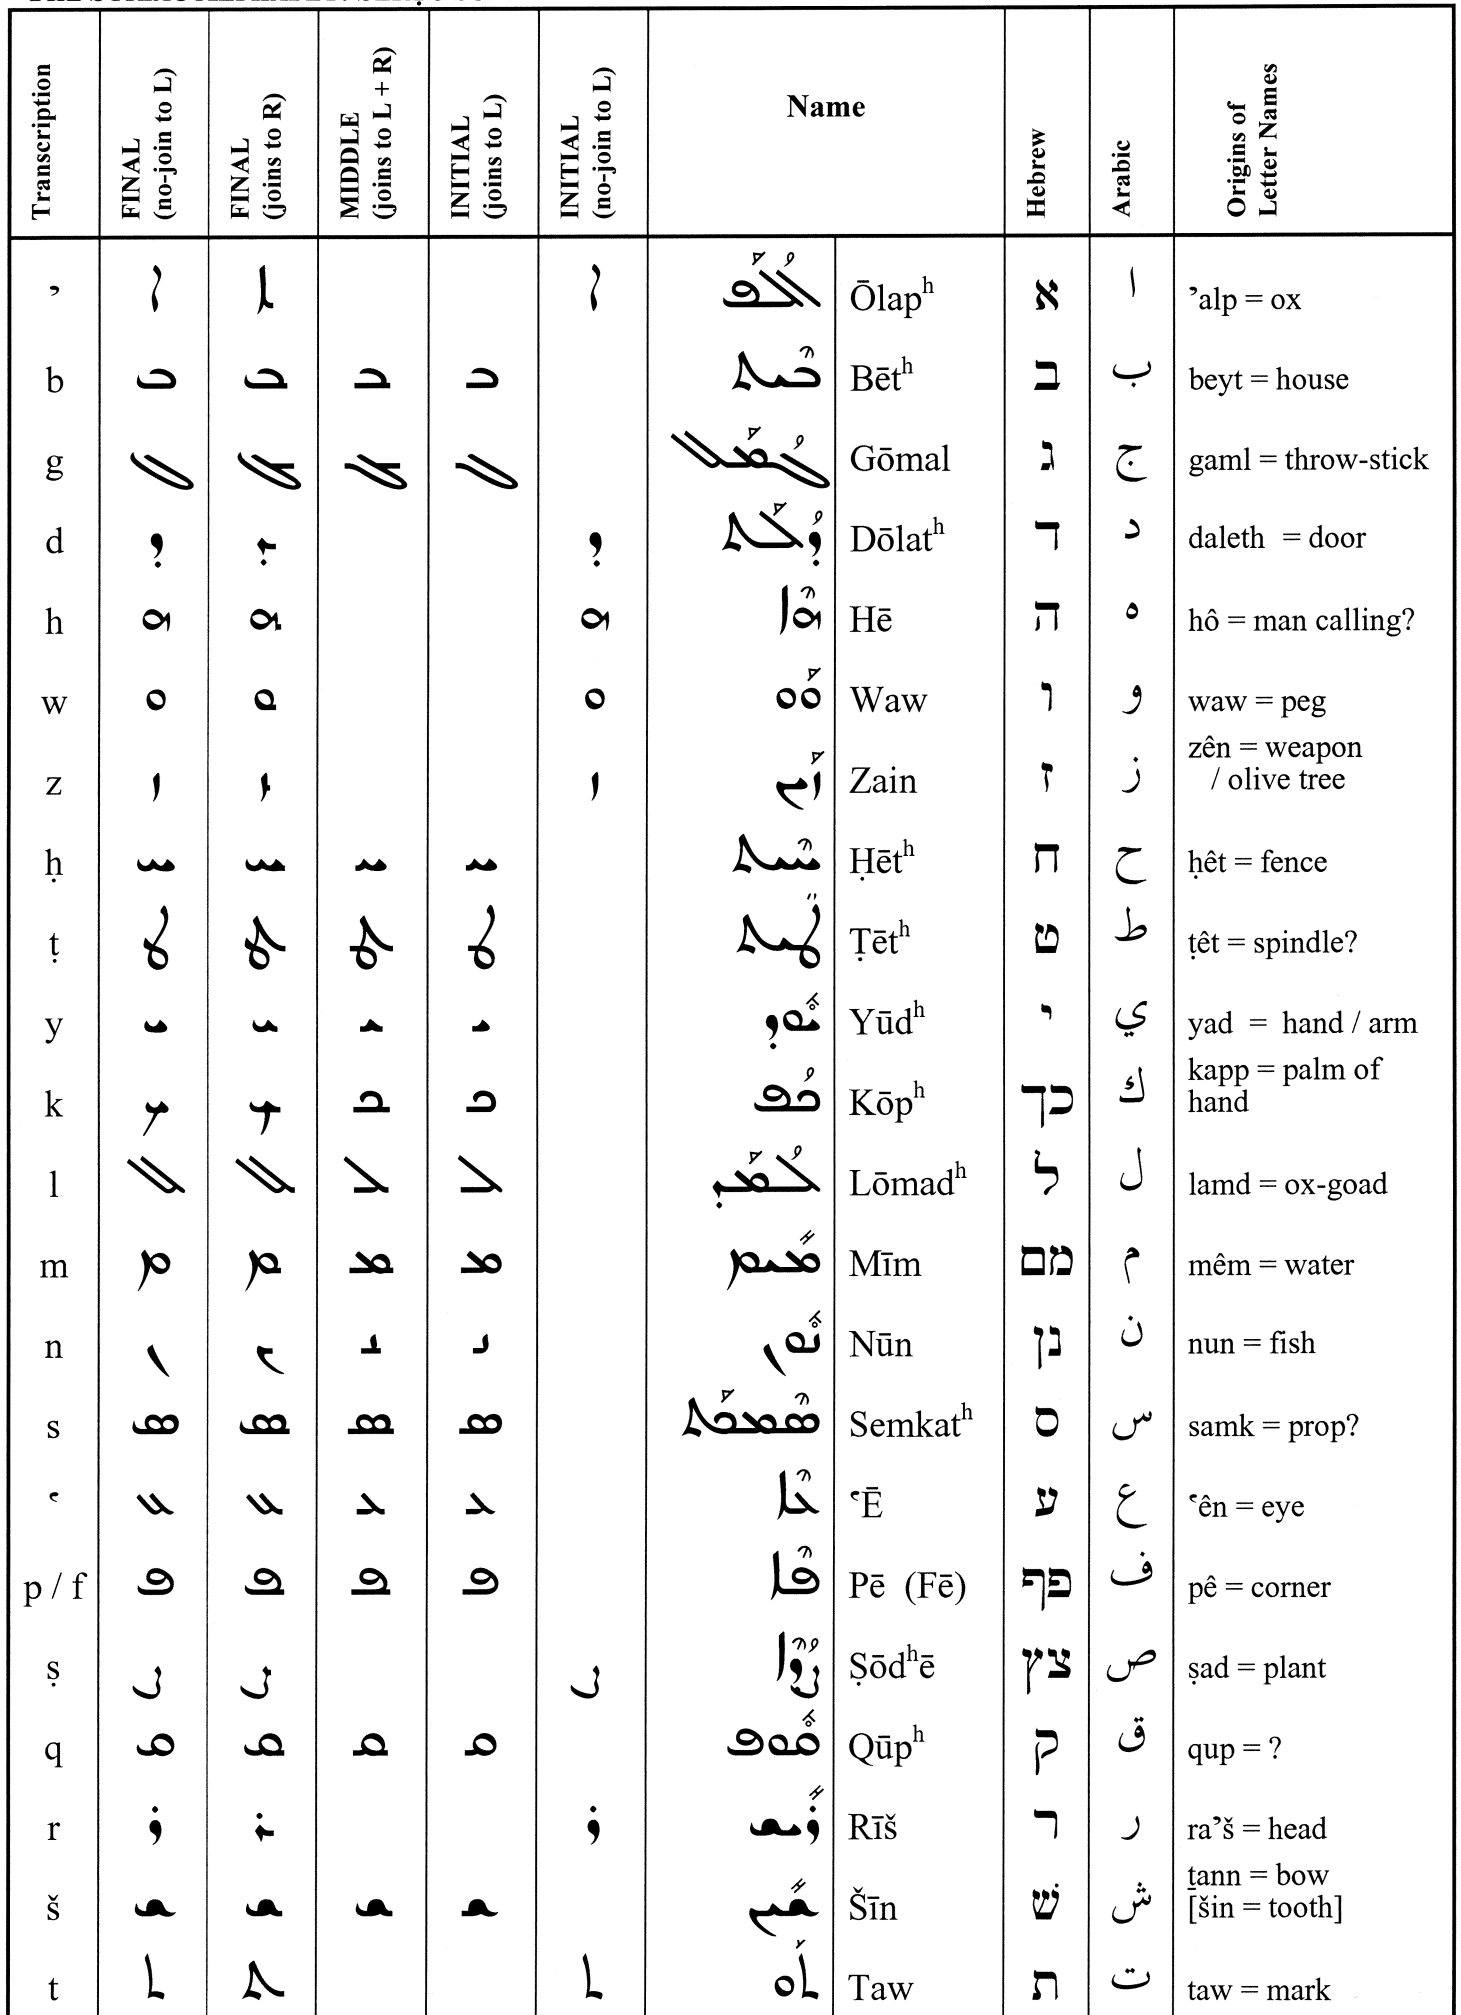 Transcription
FINAL
(no-join to L)
FINAL
(joins to R)
MIDDLE
(joins to L + R)
INITIAL
(joins to L)
INITIAL
(no-join to L)
Name
Hebrew
Arabic
Origins of
Letter Names
ʾ ܐ ܐ ܐ ܐܳܠܰܦ Ōlapʰ א ا ʾalp = ox
b ܒ ܒ ܒ ܒ ܒܶܝܬ Bētʰ ב ب beyt = house
g ܓ ܓ ܓ ܓ ܓܳܡܰܠ Gōmal ג ج gaml = throw-stick
d ܕ ܕ ܕ ܕܳܠܰܬ Dōlatʰ ד د daleth = door
h ܗ ܗ ܗ ܗܶܐ Hē ה ه hô = man calling?
w ܘ ܘ ܘ ܘܰܘ Waw ו و waw = peg
z ܙ ܙ ܙ ܙܰܝܢ Zain ז ز zên = weapon
/ olive tree
ḥ ܚ ܚ ܚ ܚ ܚܶܝܬ Ḥētʰ ח ح ḥêt = fence
ṭ ܛ ܛ ܛ ܛ ܛ̈ܝܬ Ṭētʰ ט ط ṭêt = spindle?
y ܝ ܝ ܝ ܝ ܝܽܘܕ Yūdʰ י ي yad = hand / arm
k ܟ ܟ ܟ ܟ ܟܳܦ Kōpʰ כך ك kapp = palm of
hand
l ܠ ܠ ܠ ܠ ܠܳܡܰܕ Lōmadʰ ל ل lamd = ox-goad
m ܡ ܡ ܡ ܡ ܡܺܝܡ Mīm מם م mêm = water
n ܢ ܢ ܢ ܢ ܢܽܘܢ Nūn נן ن nun = fish
s ܣ ܣ ܣ ܣ ܣܶܡܟܰܬ Semkatʰ ס س samk = prop?
ʿ ܥ ܥ ܥ ܥ ܥܶܐ ʿĒ ע ع ʿên = eye
p / f ܦ ܦ ܦ ܦ ܦܶܐ Pē (Fē) פף ف pê = corner
ṣ ܨ ܨ ܨ ܨܳܕܶܐ Ṣōdʰē צץ ص ṣad = plant
q ܩ ܩ ܩ ܩ ܩܽܘܦ Qūpʰ ק ق qup = ?
r ܪ ܪ ܪ ܪܺܝܫ Rīš ר ر raʾš = head
š ܫ ܫ ܫ ܫ ܫܺܝܢ Šīn שׁ ش ṯann = bow
[šin = tooth]
t ܬ ܬ ܬ ܬܰܘ Taw ת ت taw = mark